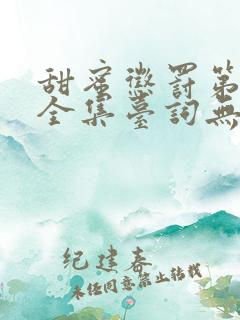 甜蜜懲罰第
全集臺詞無
纪建春
未经同意禁止转载